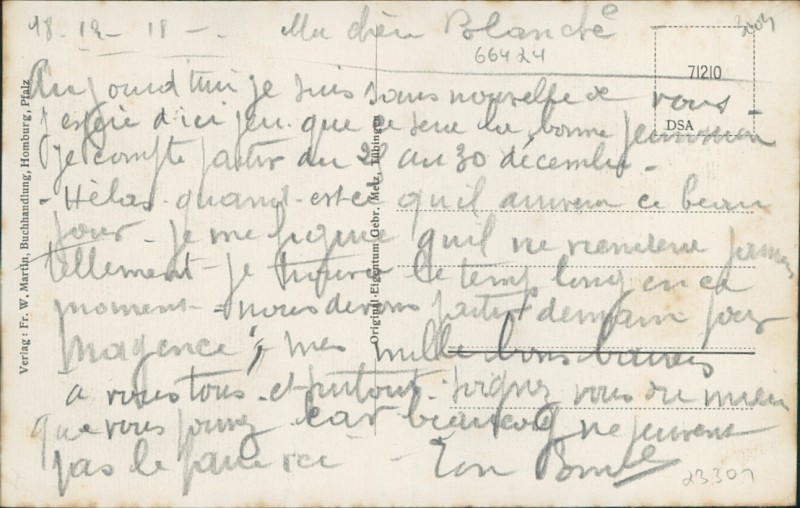 18-12-18-. Ma chère Blanche
66424
71210
DSA
Aujourd'hui je suis sans nouvelle de vous
j'espère d'ici peu. que ce sera la bonne
je compte partir du 28 au 30 décembre -
- Hélas quand est-ce qu'il arrivera ce beau
jour - je me figure qu'il ne viendra jamais
tellement je trouve le temp long en ce
moment = nous devons partir demain pour
Mayence ; mes mille bons baisers
a vous tous - et surtout. soignez vous du mieux
que vous pouvez car beaucoup ne peuvent
pas le faire ici - Ton
23307
Verlag: Fr. W. Martin, Buchhandlung, Homburg, Pfalz
Original-Eigentum Gebr. Metz, Tübingen